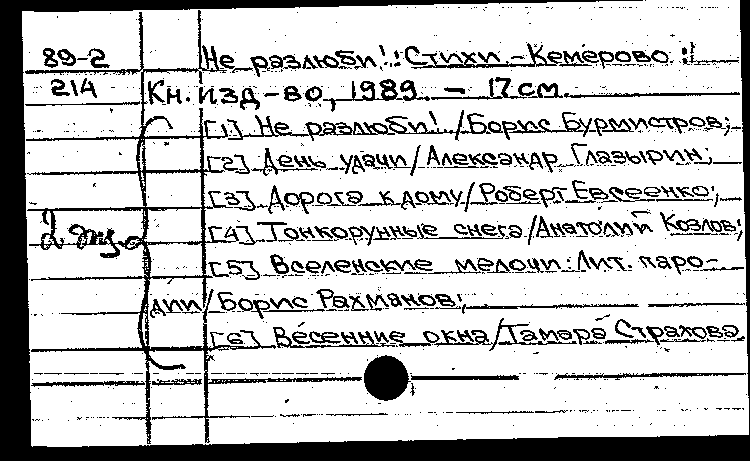 89-2 Не разлюби!: Стихи. - Кемерово:
214 Кн. изд-во, 1989. - 17 см.
[1] Не разлюби! / Борис Бурмистров;
[2] День удачи / Александр Глазырин;
[3] Дорога к дому / Роберт Евсеенко;
2 экз. [4] Тонкорунные снега / Анатолий Козлов;
[5] Вселенские мелочи: Лит. паро-
дии / Борис Рахманов;
[6] Весенние окна / Тамара Страхова